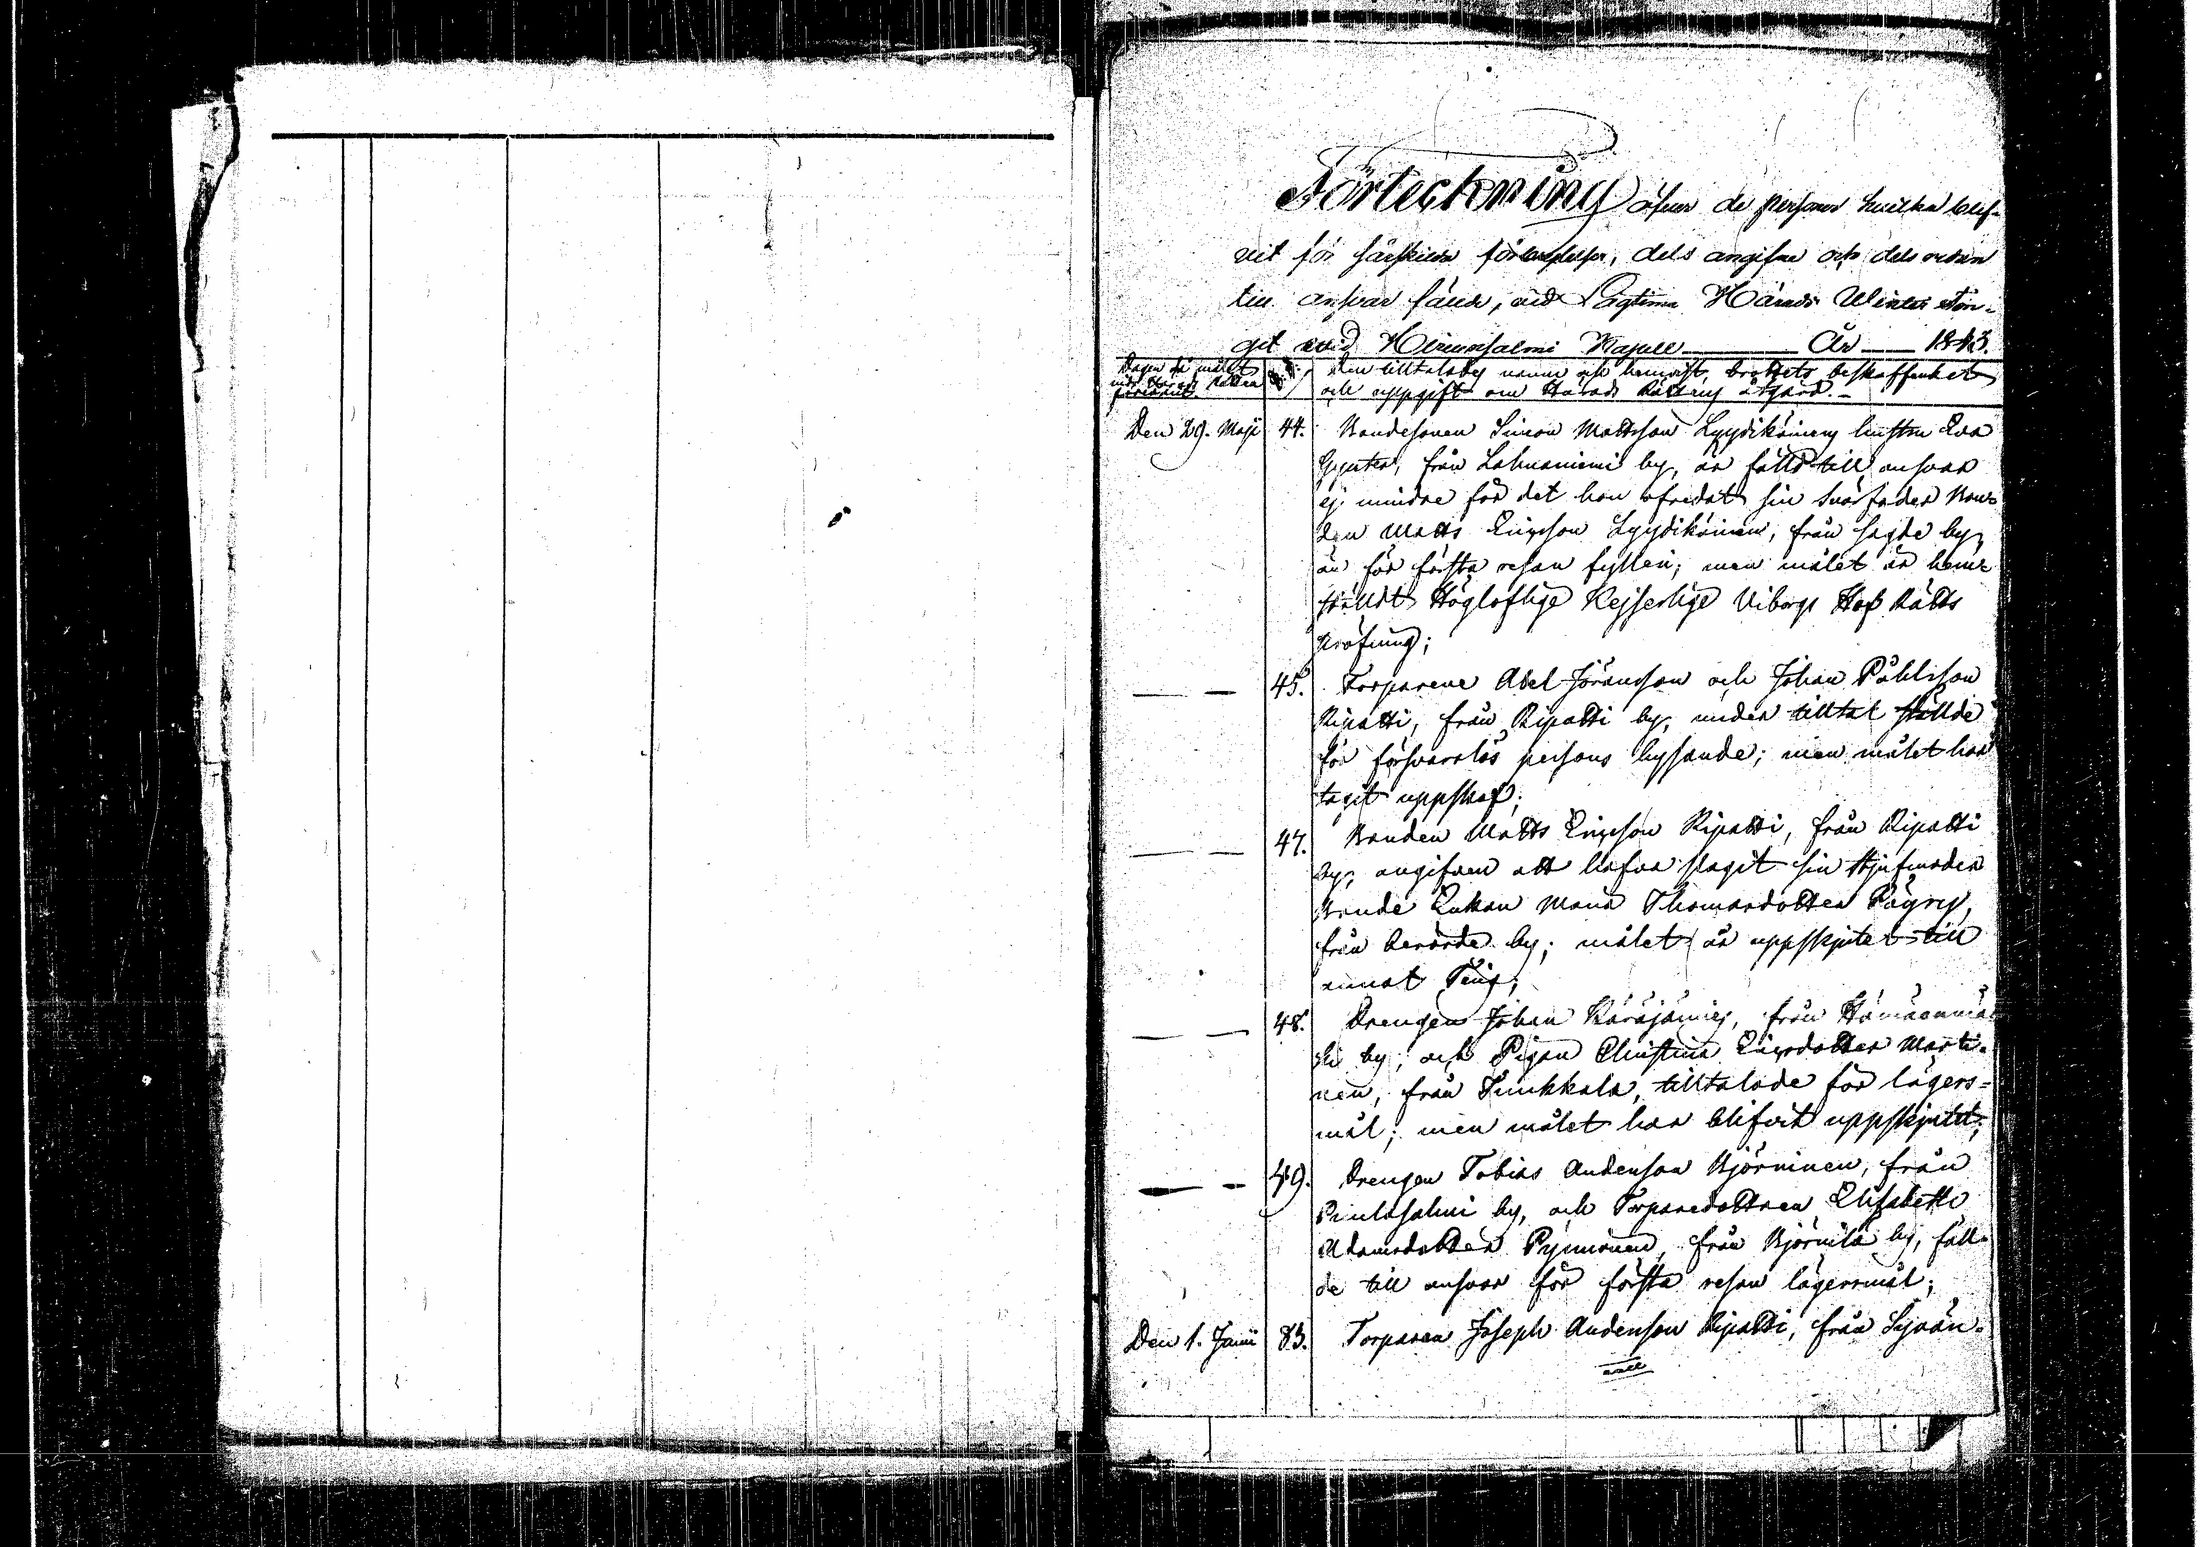 Förteckning öfver de personer hvilka blif-
vit för särskilda förbrytelser, dels angifne och dels redan
till ansvar fände, vid Lagtima Härads Winter Tin-
get vid Hirvensalmi Kapell År 1843.
Dagen då målet
inför Härads Rätten
förevarit.
den tilltalades namn och hemvist, brottets beskaffenhet
och uppgift om Härads Rättens åtgärd.
Den 29. Maji 44. Bondesonen Simon Mattsson Lyydikäinens hustru Eva
från Lahnaniemi by, är fälld till ansvar
ej mindre för det hon ofredat sin Svärfader Bon-
den Matts Ericsson Lyydikäinen, från sagde by,
än för första resan fylleri; men målet är hem-
ställdt Högloflige Kejserlige Viborgs Hof Rätts
pröfning;
— — 45. Torparene Abel Göransson och Johan Påhlsson
Ripatti, från Ripatti by, under tilltal ställde
för försvarslös persons hysande; men målet har
tagit uppskof;
— — 47. Bonden Matts Ericsson Ripatti, från Ripatti
by, angifven att hafva slagit sin Stjufmoder
Bonde Enkan Maria Thomasdotter Pöyry,
från berörde by; målet är uppskjutet till
annat Ting;
— — 48. Drengen Johan Käräjämies, från Hämeenmä-
ki by, och Pigan Christina Ericsdotter Marti-
nen, från Tuukkala, tilltalade för lägers-
mål; men målet har blifvit uppskjutet;
— — 49. Drengen Tobias Andersson Björninen, från
Puulasalmi by, och Torparedottren Elisabeth
Adamsdotter Pynnönen, från Björnilä by, fäll-
de till ansvar för första resan lägersmål;
Den 1. Junii 83. Torparen Joseph Andersson Ripatti, från Syvän-